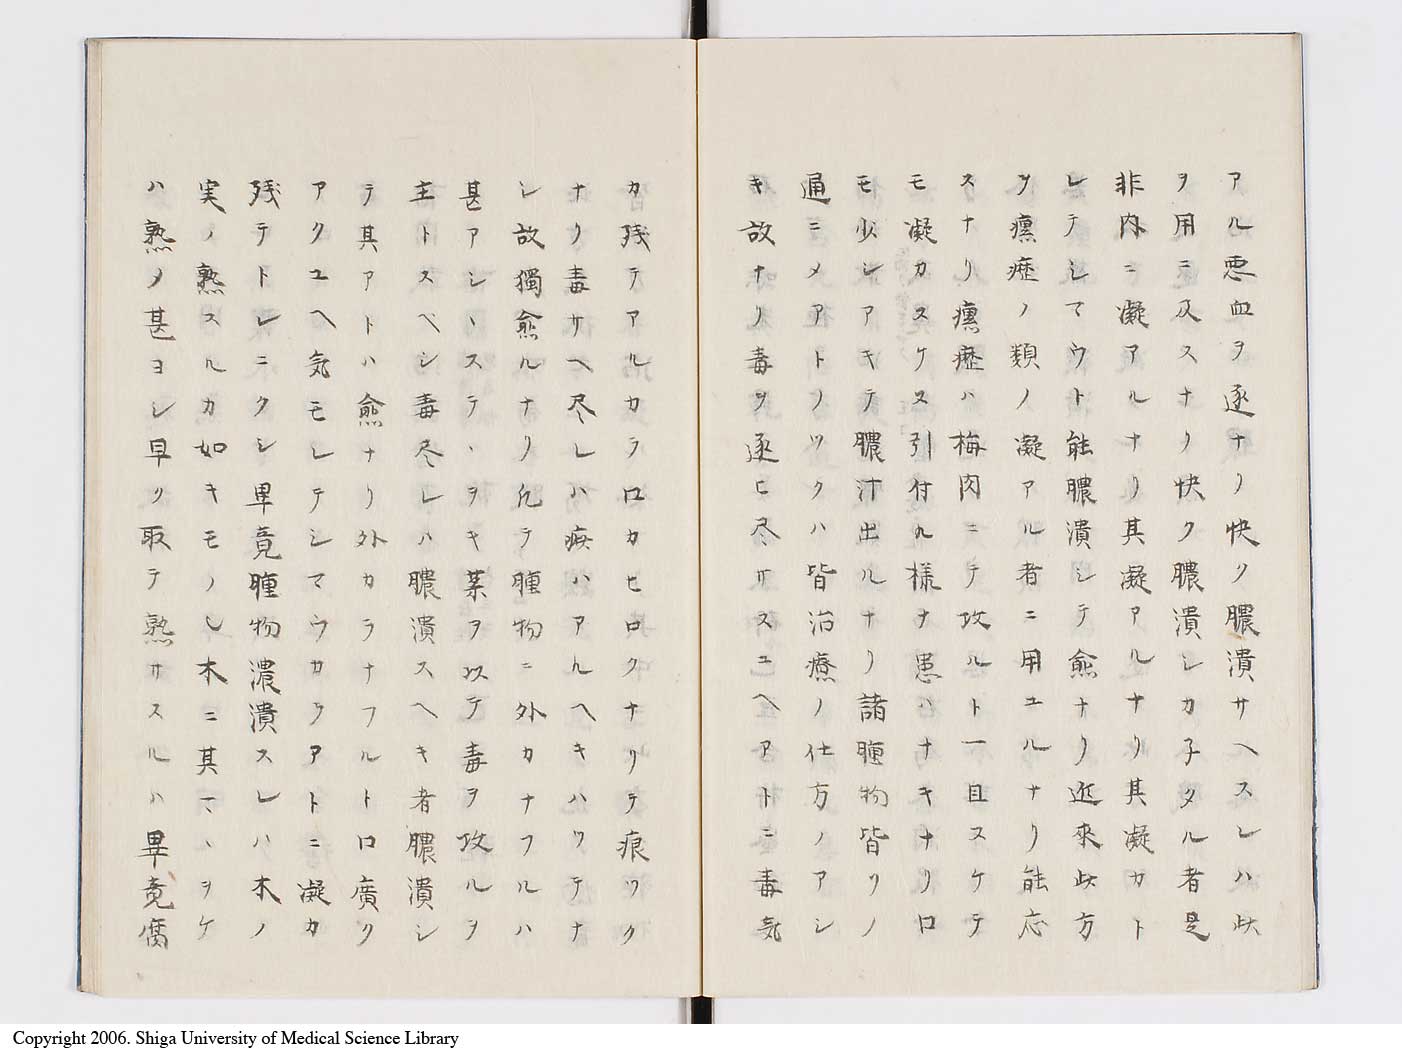 アル悪血ヲ逐ナリ快ク膿潰サヘスレハ此
ヲ用ニ及スナリ快ク膿潰シカ子タル者是
非内ニ凝アルナリ其凝アルナリ其凝カト
レテシマウト能膿潰シテ愈ナリ近来此方
ヲ瘰癧ノ類ノ凝アル者ニ用ユルナリ能応
スナリ瘰癧ハ梅肉ニテ攻ルト一旦スケテ
モ凝カスケヌ引付ル様ナ患ハナキナリ口
モ少シアキテ膿汁出ルナリ諸腫物皆リノ
通ニメアトノツクハ皆治療ノ仕方ノアシ
キ故ナリ毒ヲ逐ヒ尽サスユヘアトニ毒気
カ残テアルカラロカヒロクナリテ痕ツク
ナリ毒サヘ尽レハ痕ハアルヘキハツテナ
シ故獨愈ルナリ凢テ腫物ニ外カナフルハ
甚アシヽステヽヲキ某ヲ以テ毒ヲ攻ルヲ
主トスベシ毒尽レハ膿潰スヘキ者膿潰シ
テ其アトハ愈ナリ外カラナフルト口廣ク
アクユヘ気モレテシマウカラアトニ凝カ
残テトレニクシ畢竟腫物濃潰スレハ木ノ
実ノ熟スルカ如キモノ乄木ニ其マヽヲケ
ハ熟ノ甚ヨシ早ク取テ熟サスルハ畢竟腐
Copyright 2006. Shiga University of Medical Science Library